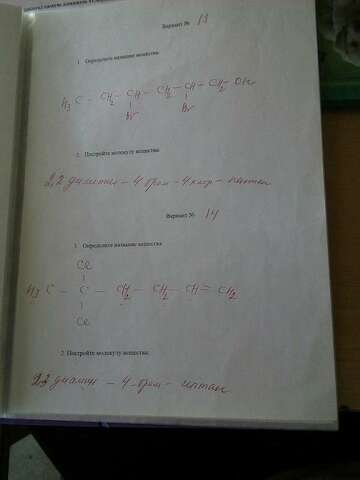 Вариант № 13
1. Определите название вещества
H₃C – CH₂ – CH – CH₂ – CH – CH₂ – OH
Br Br
2. Постройте молекулу вещества:
2,2 диметил – 4 бром – 4 хлор –
Вариант № 14
1. Определите название вещества
Cl
H₃C – C – CH₂ – CH₂ – CH = CH₂
Cl
2. Постройте молекулу вещества:
– 4 – бром –